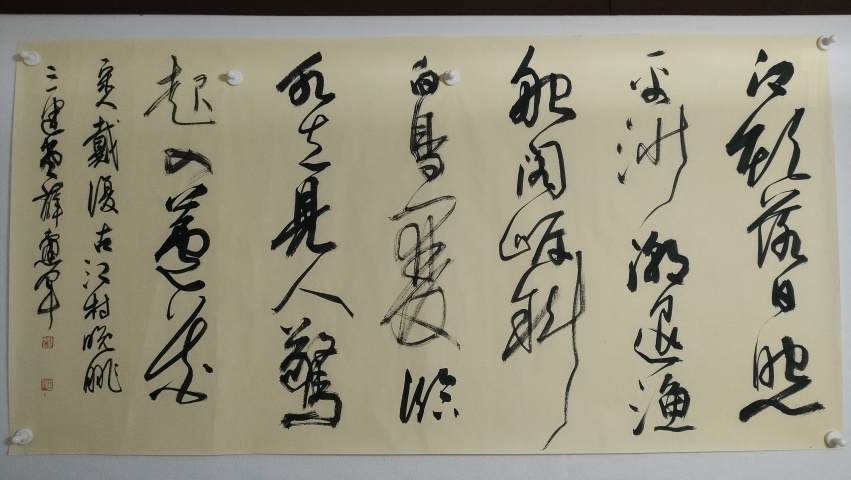 江頭落日照
平沙潮退漁
船閣岸斜
白鳥一雙臨
水立見人驚
起入蘆花
宋人戴復古江村晚眺